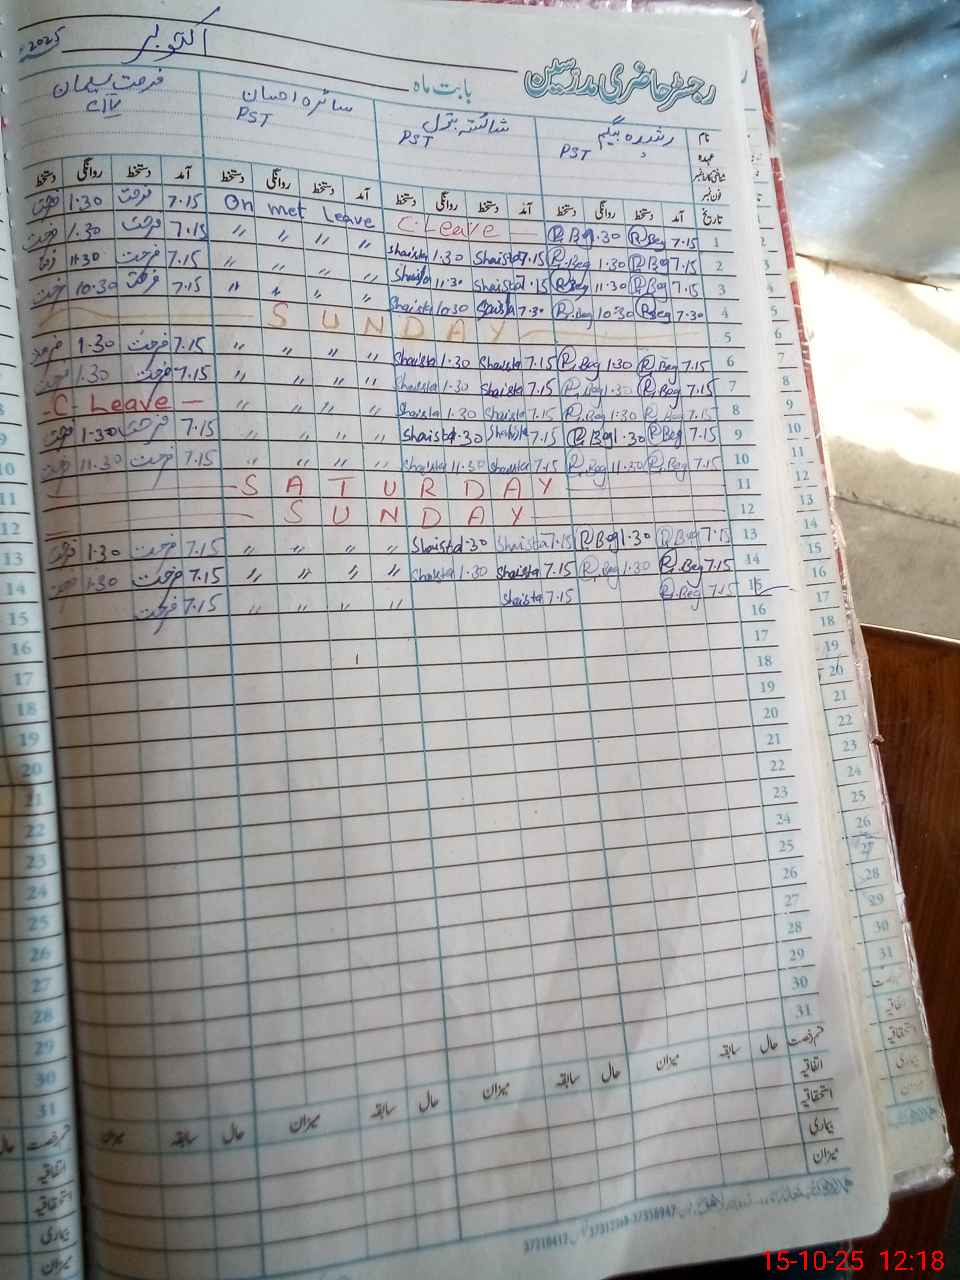 رجسٹر حاضری مدرسین بابت ماہ اکتوبر 2025
نام رشیدہ بیگم شائستہ بتول سائرہ احسان فرحت سلیمان
عہدہ PST PST PST CIV
شناختی کارڈ نمبر
فون نمبر
تاریخ آمد دستخط روانگی دستخط آمد دستخط روانگی دستخط آمد دستخط روانگی دستخط آمد دستخط روانگی دستخط
1 7.15 R.Beg 1.30 R.Beg C.Leave — On met Leave 7.15 فرحت 1.30 فرحت
2 7.15 R.Beg 1.30 R.Beg 7.15 Shaista 1.30 Shaista " " " " 7.15 فرحت 1.30 فرحت
3 7.15 R.Beg 11.30 R.Beg 7.15 Shaista 11.30 Shaista " " " " 7.15 فرحت 11.30
4 7.30 R.Beg 10:30 R.Beg 7.30 Shaista 10.30 Shaista " " " " 7.15 فرحت 10.30 فرحت
5 SUNDAY
6 7.15 R.Beg 1.30 R.Beg 7.15 Shaista 1.30 Shaista " " " " 7.15 فرحت 1.30 فرحت
7 7.15 R.Beg 1.30 R.Beg 7.15 Shaista 1.30 Shaista " " " " 7.15 فرحت 1.30 فرحت
8 7.15 R.Beg 1:30 R.Beg 7.15 Shaista 1.30 Shaista " " " " - C - Leave -
9 7.15 R.Beg 1.30 R.Beg 7.15 Shaista 1.30 Shaista " " " " 7.15 فرحت 1.30 فرحت
10 7.15 R.Beg 11.30 R.Beg 7.15 Shaista 11.30 Shaista " " " " 7.15 فرحت 11.30 فرحت
11 SATURDAY
12 SUNDAY
13 7.15 R.Beg 1.30 R.Beg 7.15 Shaista 1.30 Shaista " " " " 7.15 فرحت 1.30 فرحت
14 7.15 R.Beg 1.30 R.Beg 7.15 Shaista 1.30 Shaista " " " " 7.15 فرحت 1.30 فرحت
15 7.15 R.Beg 7.15 Shaista " " " " 7.15 فرحت
16
17
18
19
20
21
22
23
24
25
26
27
28
29
30
31
قسم رخصت حال سابقہ میزان حال سابقہ میزان حال سابقہ میزان حال سابقہ میزان
اتفاقیہ
استحقاقیہ
بیماری
میزان
15-10-25 12:18